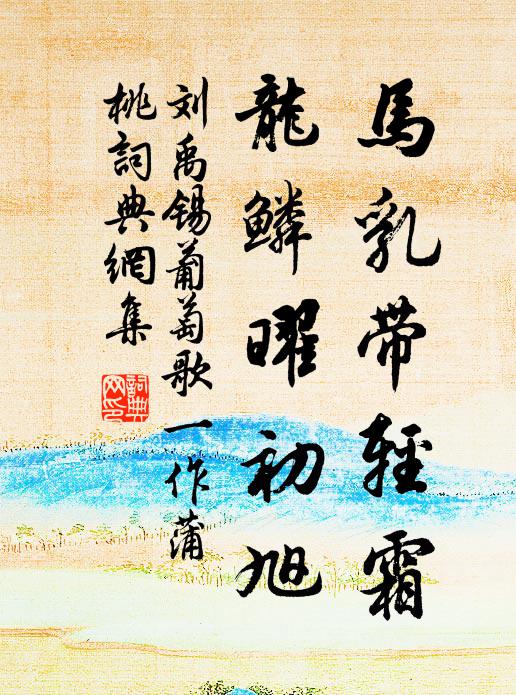 馬乳带輕霜
龍鳞曜初旭
刘禹锡葡萄歌一作蒲
桃詞典網集
詞典
网印